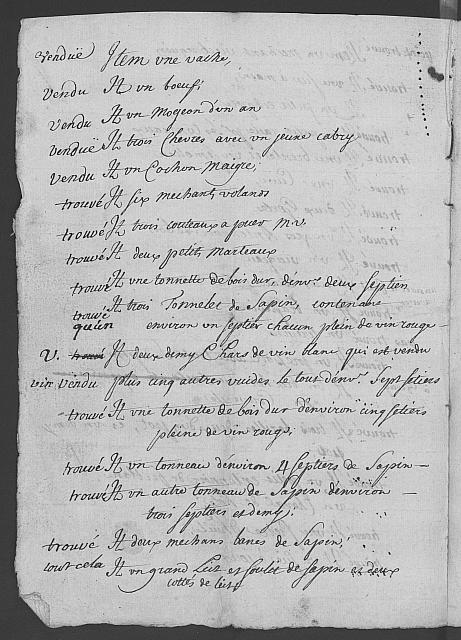 venduë Jtem vne vache,
vendu Jt vn boeuf,
vendu Jt vn Mogeon d'vn an
venduë Jt trois Chevres avec vn jeune cabry
vendu Jt vn Cochon Maigre,
trouvé Jt six mechants volands
trouvé Jt trois couteaux a
trouvé Jt deux petit marteaux
trouvé Jt vne tonnette de bois dur, d'env.n deux septiers
trouvé Jt trois Tonnelet de Sapin, contenant
qu'un environ vn septier chacun plein de vin rouge
v. trouvé Jt deux demy Chars de vin blanc qui est vendu
vendu plus cinq autres vuides le tout d'env.n sept setiers
trouvé Jt vne tonnette de bois dur d'environ cinq setiers
pleine de vin rouge,
trouvé Jt vn tonneau d'environ 4 septiers de Sapin —
trouvé Jt vn autre tonneau de Sapin d'environ —
trois septiers et demy,
trouvé Jt deux mechans bancs de Sapin,
tout cela Jt vn grand Lit et de Sapin et deux
de lit